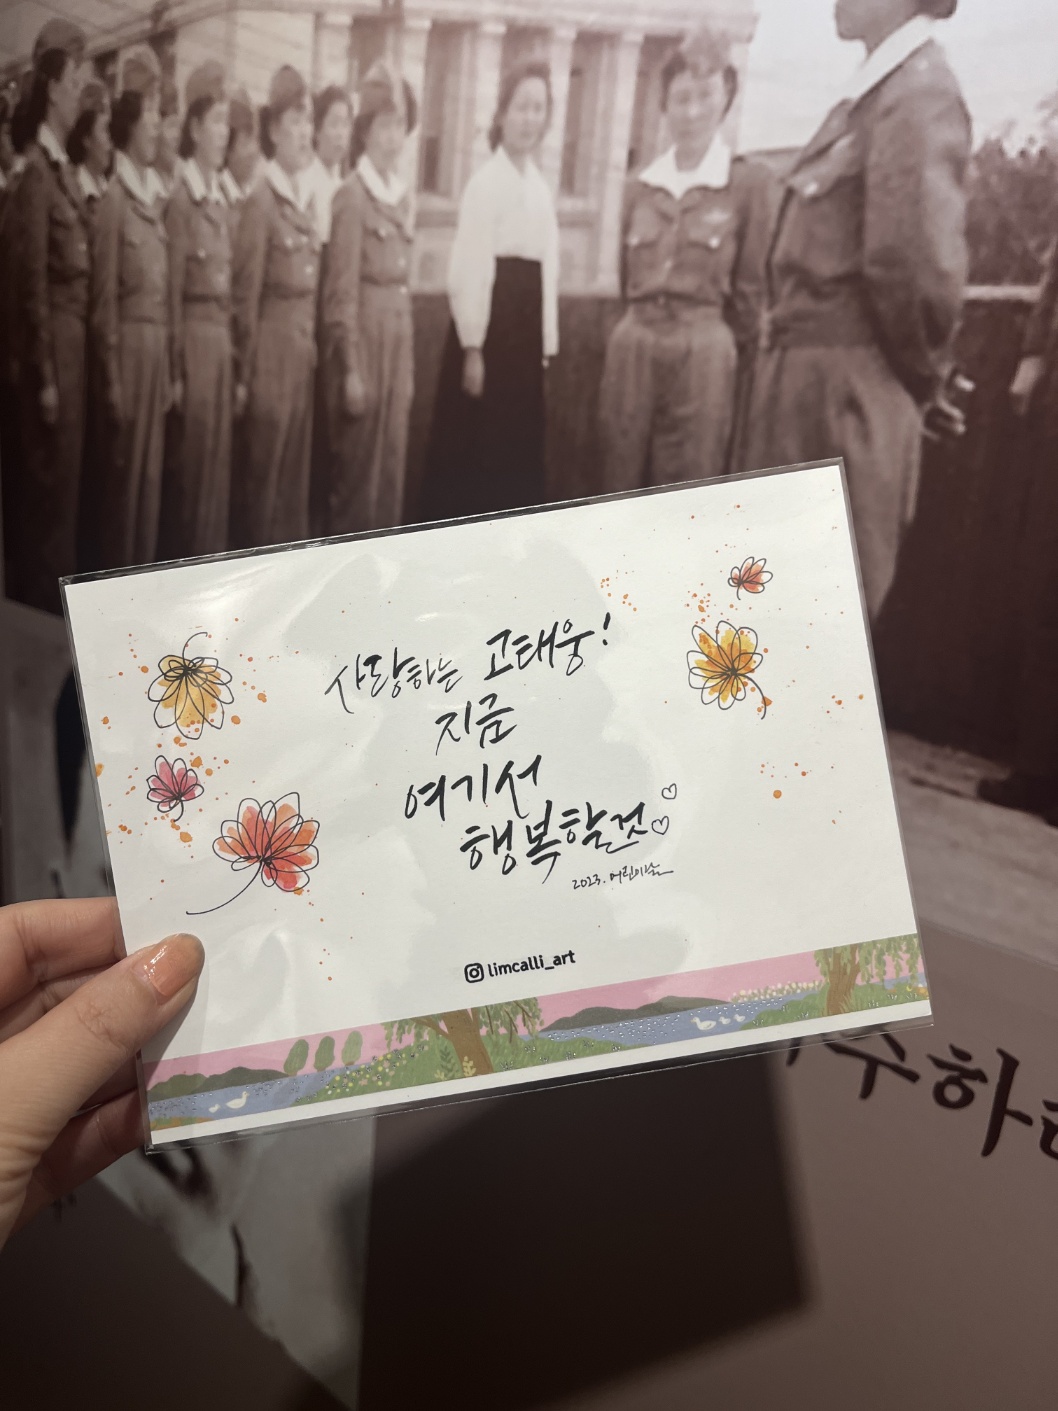 사랑하는 고태웅!
지금
여기서
행복할것♡♡
2023. 어린이날
limcalli_art
수하